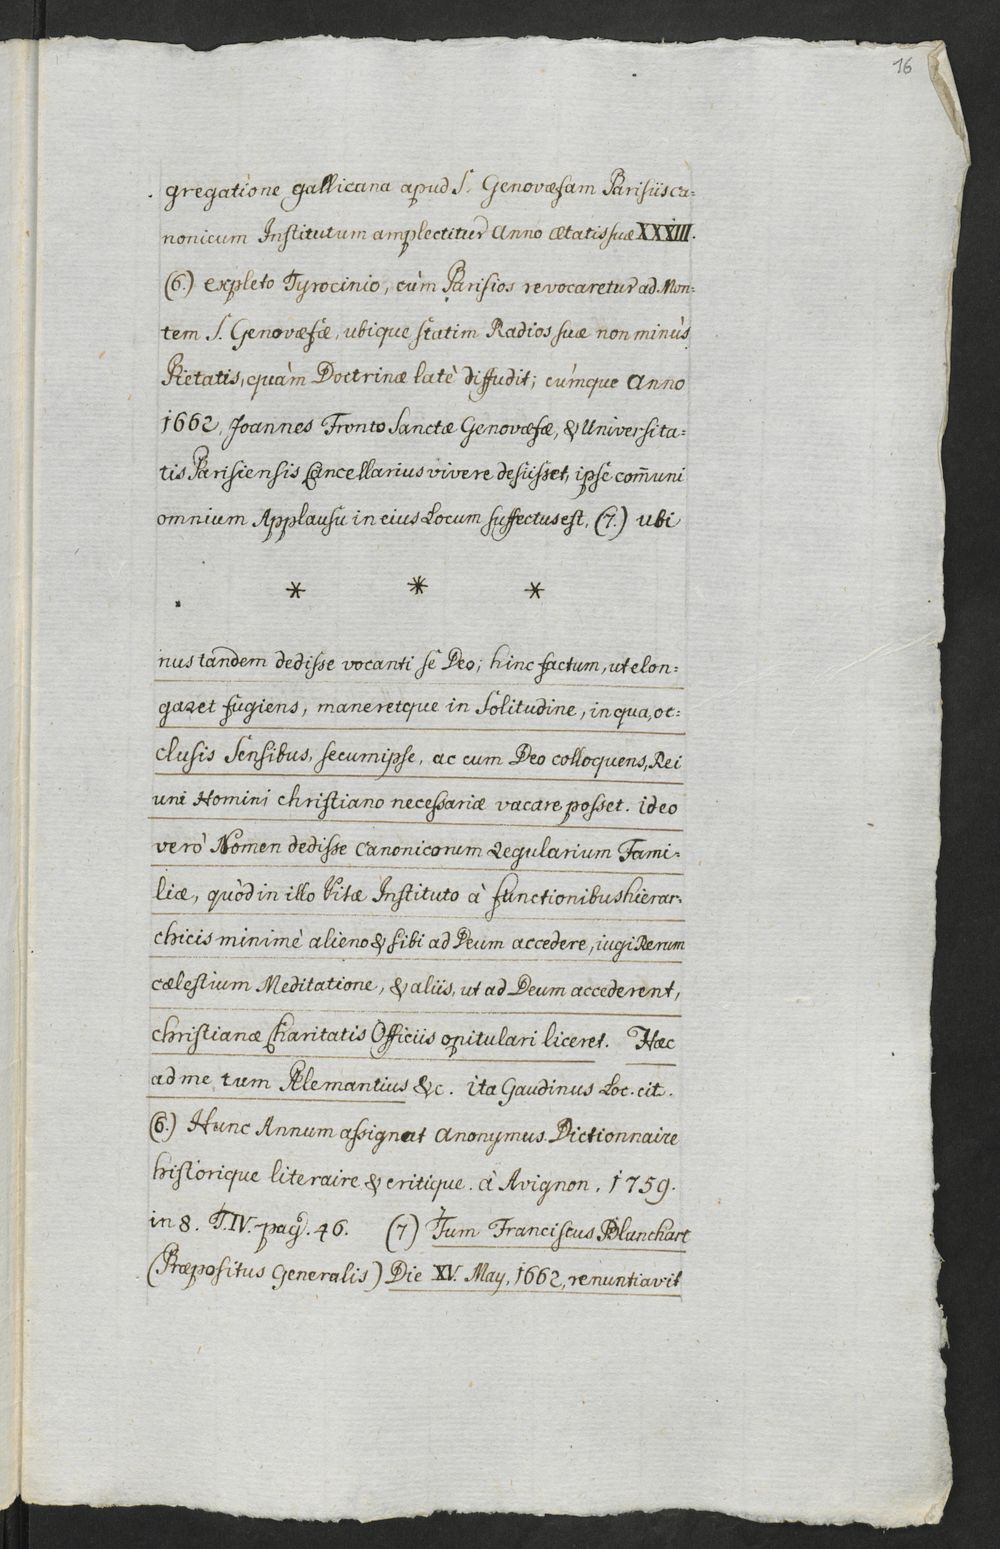 16
gregatione gallicana apud S. Genovæfam Parisiis ca=
nonicum Institutum amplectitur Anno ætatis suæ XXXIII.
(6.) expleto Tyrocinio, cùm Parisios revocaretur ad Mon=
tem S. Genovæfæ, ubique statim Radios suæ non minùs
Pietatis, quàm Doctrinæ latè diffudit; cúmque Anno
1662, Joannes Fronto Sanctæ Genovæfæ, & Universita=
tis Parisiensis Cancellarius vivere desiisset, ipse com̃uni
omnium Applausu in eius Locum suffectus est, (7.) ubi
* * *
nus tandem dedisse vocanti se Deo; hinc factum, ut elon=
garet fugiens, maneretque in Solitudine, in qua, oc=
clusis Sensibus, secum ipse, ac cum Deo colloquens, Rei
uni Homini christiano necessariæ vacare posset. ideo
verò Nomen dedisse Canonicorum Regularium Fami=
liæ, quòd in illo Vitæ Instituto à functionibus hierar=
chicis minimè alieno & sibi ad Deum accedere, iugi Rerum
cælestium Meditatione, & aliis, ut ad Deum accederent,
christianæ Charitatis Officiis opitulari liceret. Hæc
ad me tum Alemantius &c. ita Gaudinus Loc. cit.
(6.) Hunc Annum assignat Anonymus. Dictionnaire
historique literaire & critique. à Avignon. 1759.
in 8. T. IV. pag. 46. (7) Tum Franciscus Blanchart
(Præpositus Generalis) Die XV. May, 1662, renuntiavit